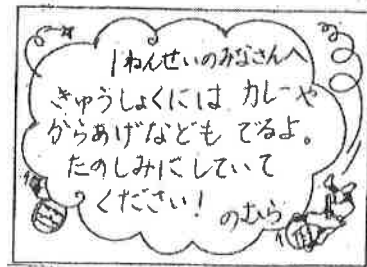 1ねんせいのみなさんへ
きゅうしょくには カレーや
からあげなども でるよ。
たのしみにしていて
ください!
のむら